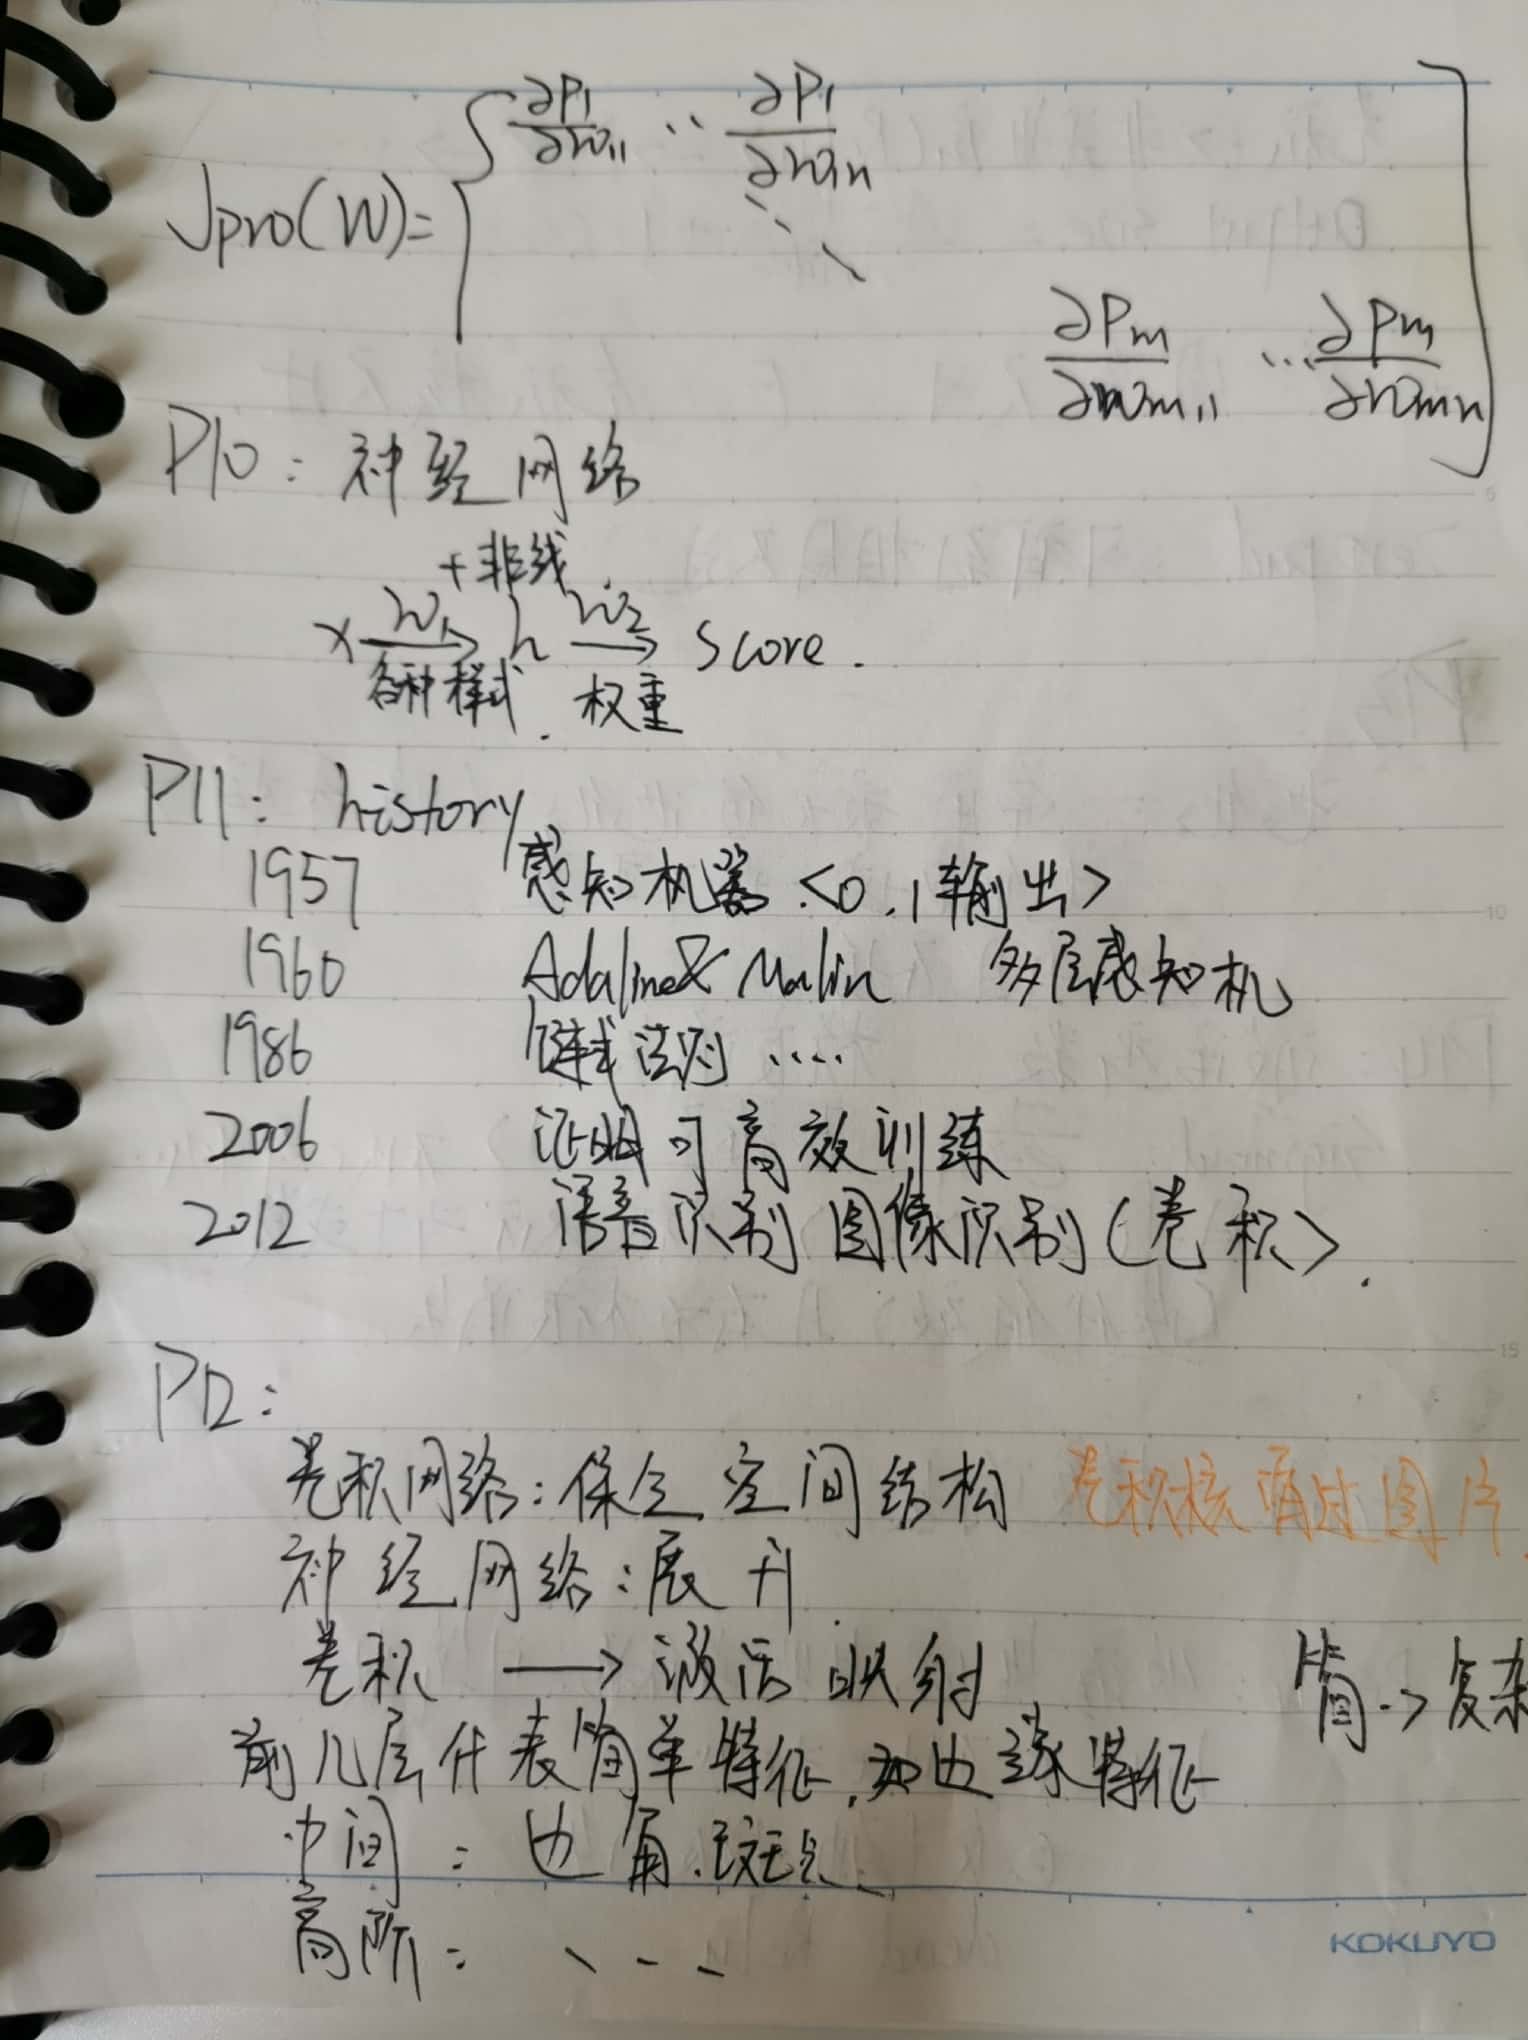 Jpro(W)= [ ∂P1/∂w11 ·· ∂P1/∂w1n
⋱
∂Pm/∂wm11 ... ∂Pm/∂wmn ]
P10: 神经网络
+非线.
x →(W1) h →(W2) score.
各种样式. 权重
P11: history
1957 感知机器<0.1输出>
1960 Adaline& Malin 多层感知机
1986 链式法则 ....
2006 证明可高效训练
2012 语音识别 图像识别(卷积>.
P12:
卷积网络:保全空间结构 卷积核 通过图片.
神经网络:展开.
卷积 → 激活映射 简->复杂
前几层代表简单特征.如边缘特征
中间: 边角.斑点
高阶: 、---
KOKUYO